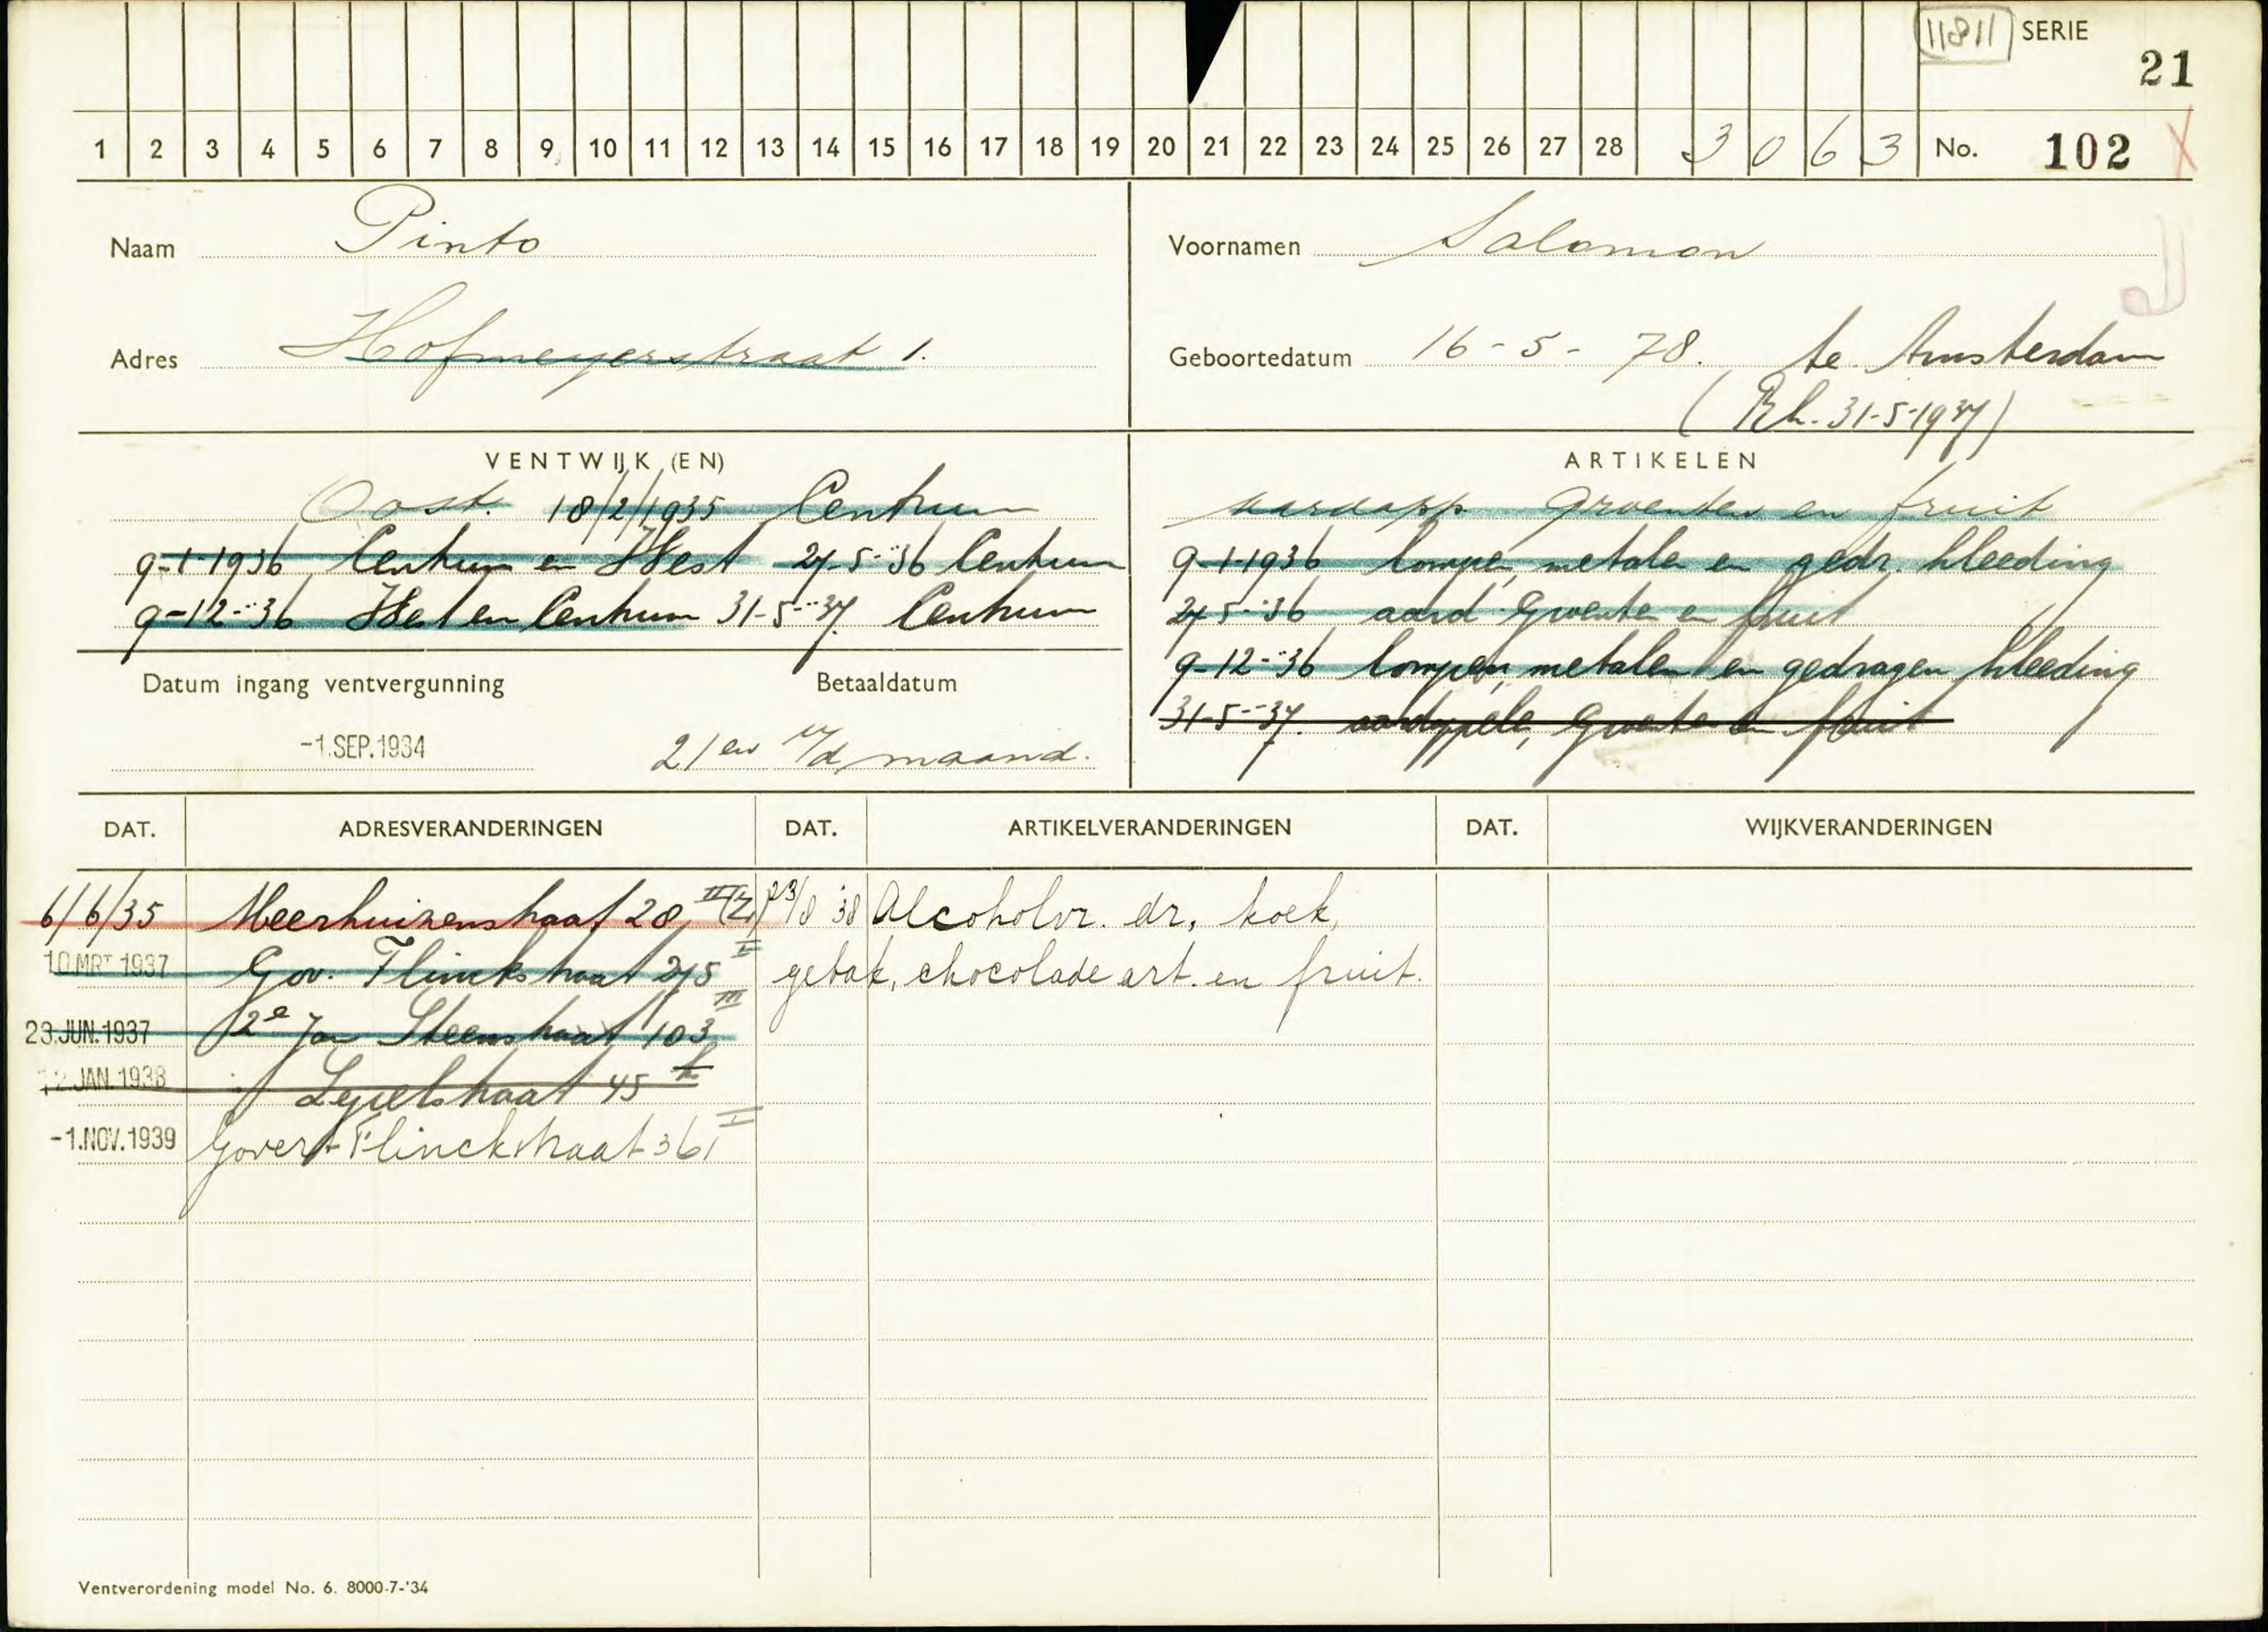 11811 SERIE
21
1 2 3 4 5 6 7 8 9 10 11 12 13 14 15 16 17 18 19 20 21 22 23 24 25 26 27 28 3 0 6 3 No. 102 X
Naam Pinto
Voornamen Salomon
Adres Hofmeyerstraat 1.
Geboortedatum 16-5-78. te Amsterdam
31-5-1937)
VENTWIJK (EN)
Oost. 18/2/1935 Centrum
9-1-1936 Centrum en West 27-5-'36 Centrum
9-12-'36 West en Centrum 31-5-'37. Centrum
ARTIKELEN
aardapp. groenten en fruit
9-1-1936 lompen, metalen en gedr. kleeding
27-5-'36 aard. Groenten en fruit
9-12-'36 lompen, metalen en gedragen kleeding
31-5-'37. aardappele, Groente en fruit
Datum ingang ventvergunning
Betaaldatum
-1.SEP.1934
21en v/d maand.
DAT. ADRESVERANDERINGEN DAT. ARTIKELVERANDERINGEN DAT. WIJKVERANDERINGEN
6/6/35 Meerhuizenstraat 28 23/8 '38 Alcoholvr. dr, koek,
10 MRT 1937 Gov. Flinckstraat 275 I gebak, chocolade art. en fruit.
23.JUN.1937 2e Jan Steenstraat 103 III
12 JAN. 1938 Lepelstraat 45
-1.NOV.1939 Govert Flinckstraat 361 I
Ventverordening model No. 6. 8000-7-'34